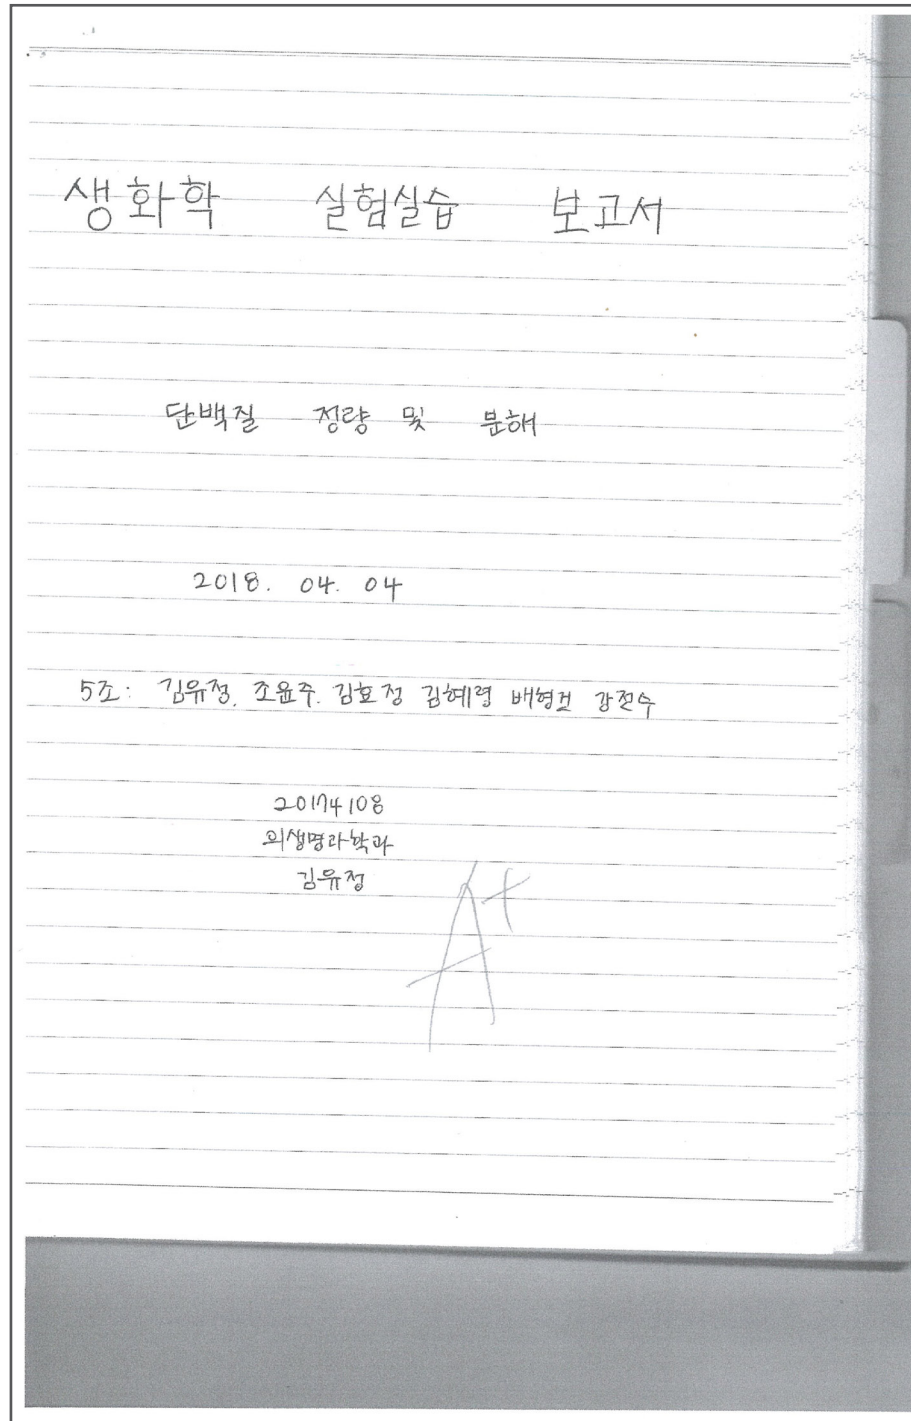 생화학 실험실습 보고서
단백질 정량 및 분해
2018. 04. 04
5조: 김유정, 조윤주, 김효정 김혜령 배형건 강전수
20174108
의생명과학과
김유정
A+